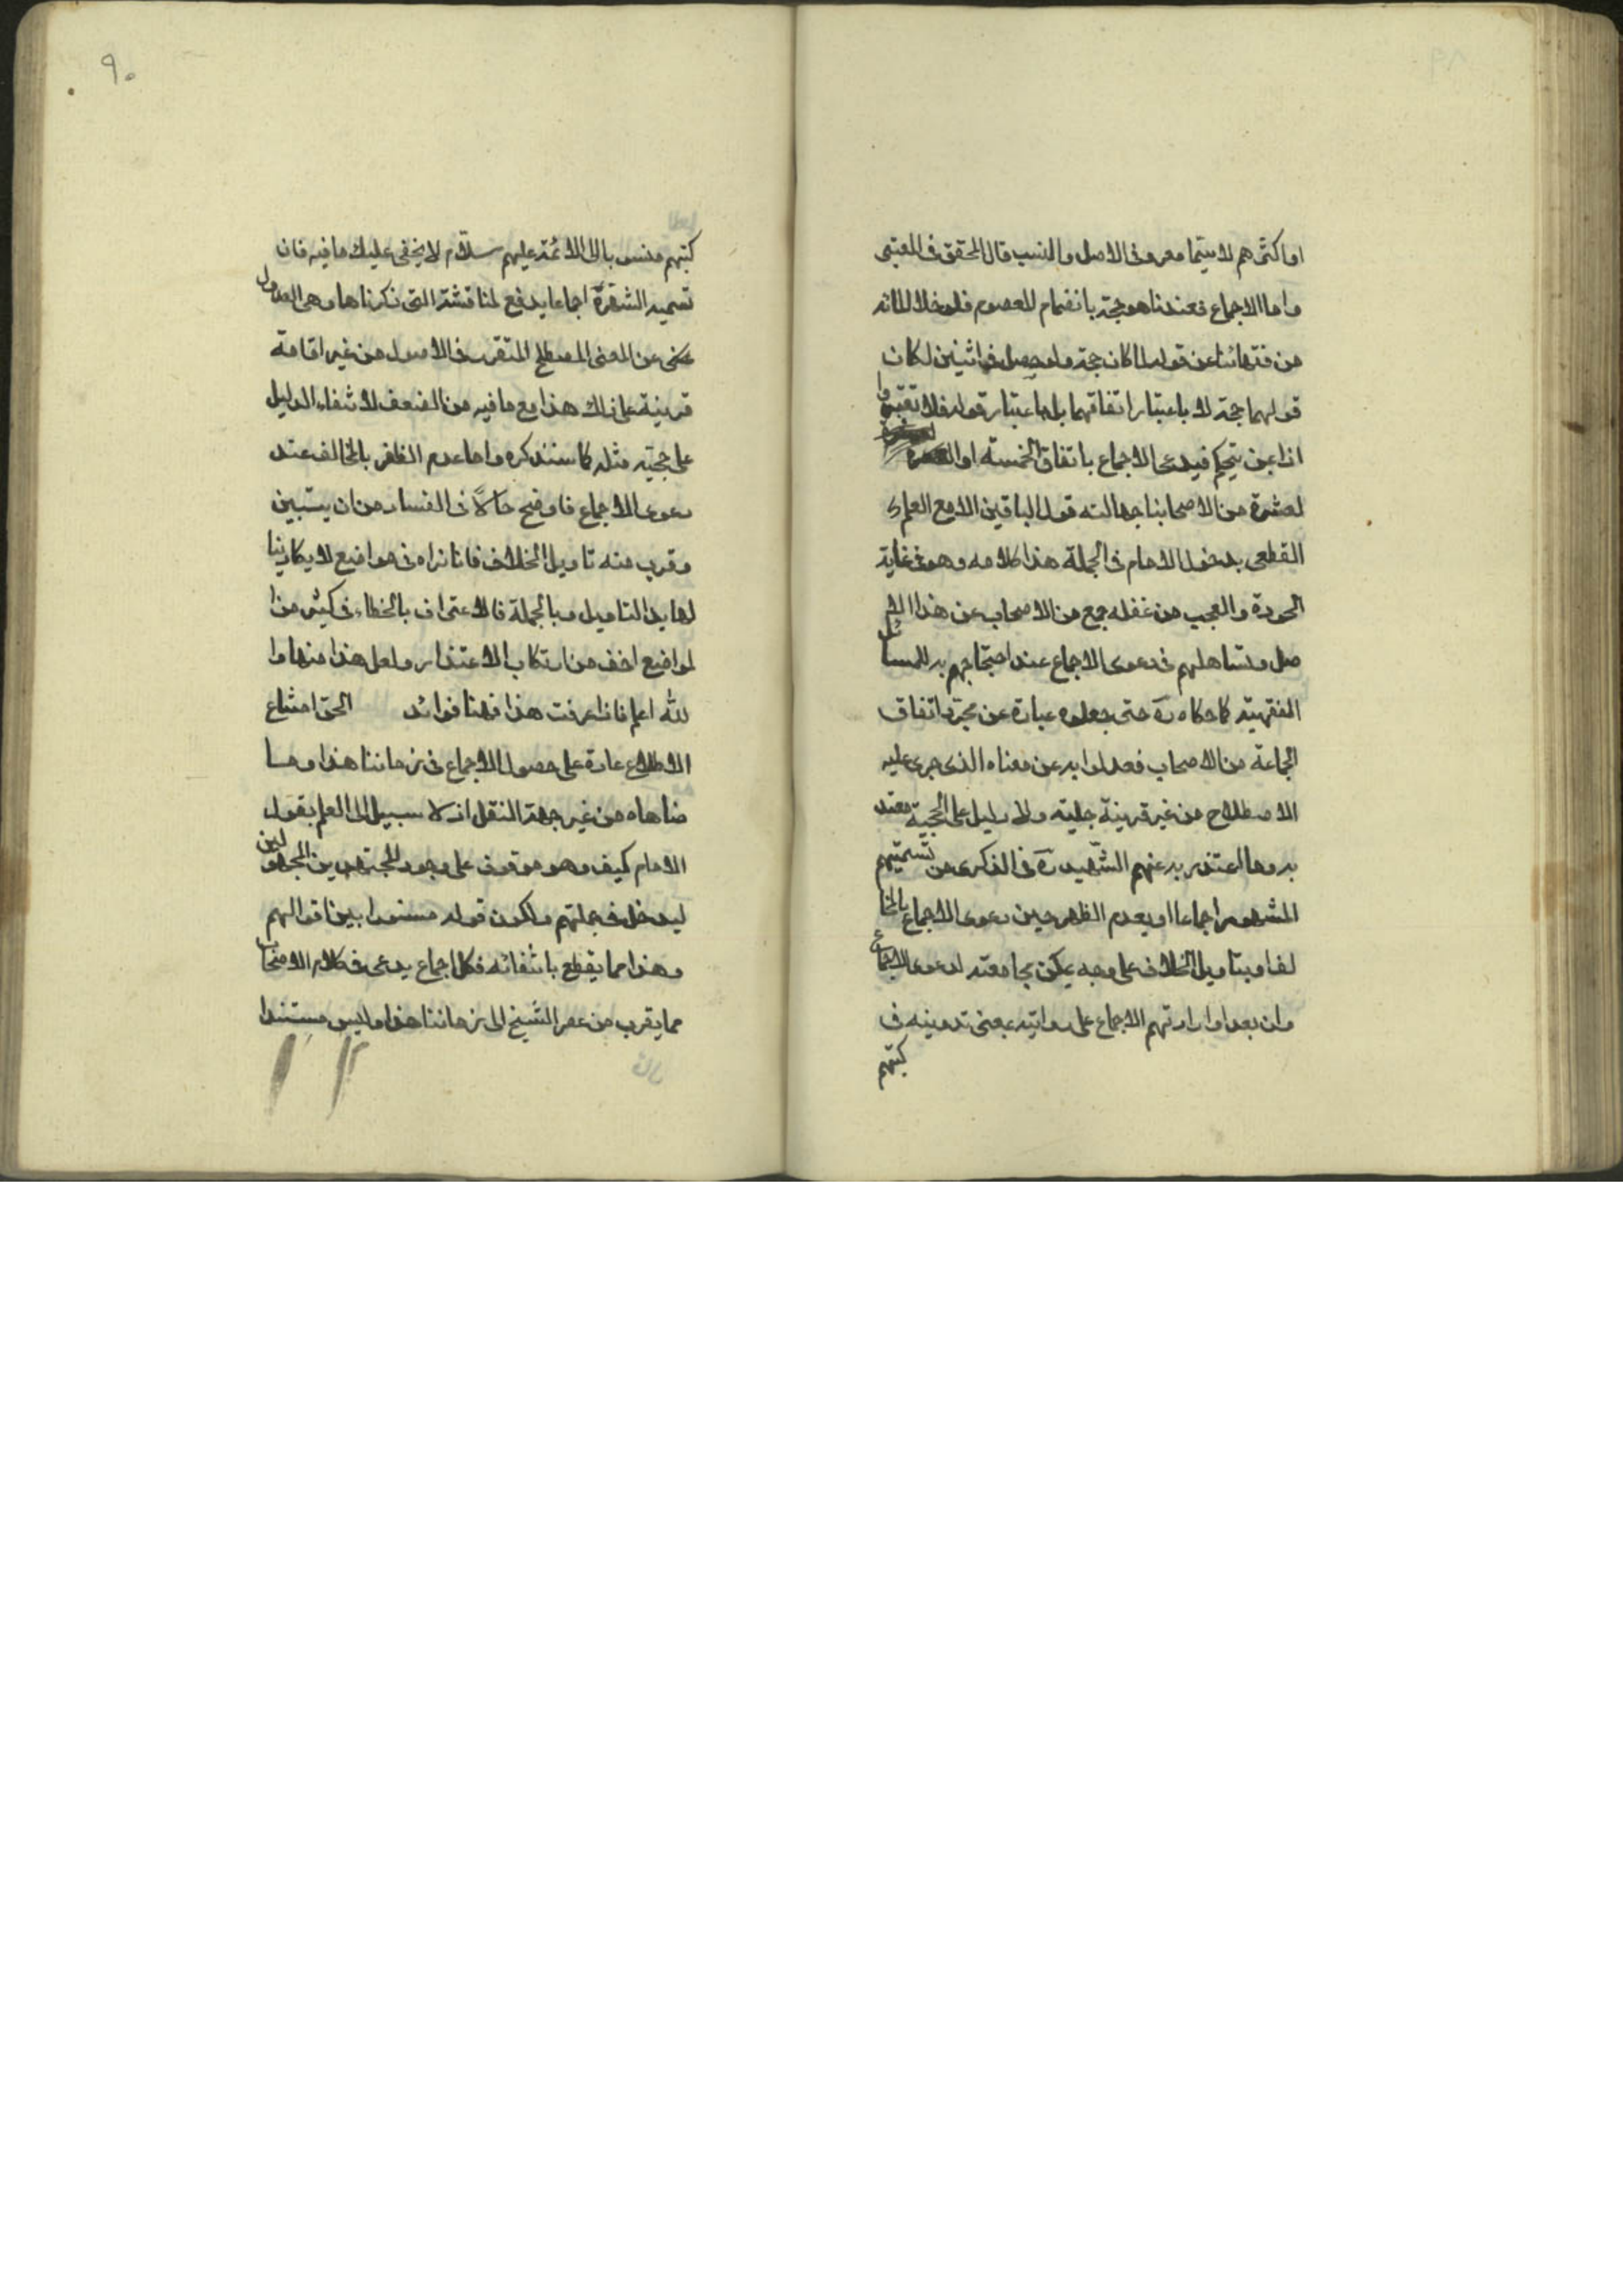 او اكثرهم لا سيما معروفى الاصل والنسب قال المحقق فى المعتبر
واما الاجماع فعندنا هو حجة بانضمام المعصوم فلو خلا المائة
من فقهائنا عن قوله لما كان حجة ولو حصل فى اثنين لكان
قولهما حجة لا باعتبار اتفاقهما بل باعتبار قوله فلا تغتروا
اذا بمن يتحكم فيدعى الاجماع باتفاق الخمسة او
لعشرة من الاصحابنا جهالته قول الباقين الا مع العلم
القطعى بدخول الامام فى الجملة هذا كلامه وهو فى غاية
الجودة والعجب من غفله جمع من الاصحاب عن هذا الا
صل وتساهلهم فى دعوى الاجماع عند احتجاجهم به للمسائل
الفقهية كما حكاه ره حتى جعلوه عبارة عن مجرد اتفاق
الجماعة من الاصحاب فعدلوا به عن معناه الذى جرى عليه
الاصطلاح من غير قرينة جلية ولا دليل على الحجية معتد
به وما اعتذر به عنهم الشهيد ره فى الذكرى من تسميتهم
المشهور اجماعا او بعدم الظفر حين دعوى الاجماع بالمخا
لف او بتاويل الخلاف على وجه يمكن مجامعته لدعوى الاجماع
وان بعد او ارادتهم الاجماع على روايته بمعنى تدوينه فى
كتبهم
٩٠
كتبهم منسوبا الى الائمة عليهم سلام لا يخفى عليك ما فيه فان
تسمية الشهرة اجماعا يدفع لمناقشة التى ذكرناها وهى العدول
عن المعنى المصطلح المتقرر فى الاصول من غير اقامة
قرينة على ذلك هذا مع ما فيه من الضعف لانتفاء الدليل
على حجيته مثله كما سنذكره واما عدم الظفر بالمخالف عند
دعوى الاجماع فاوضح حالا فى الفساد من ان يتبين
وقرب منه تاويل الخلاف فانا نراه فى مواضع لا يكاد ينا
لها يد التاويل وبالجملة فالاعتراف بالخطاء فى كثير من ا
لمواضع اخف من ارتكاب الاعتذار ولعل هذا منها وا
لله اعلم فاذا عرفت هذا فهنا فوائد الحق امتناع
الاطلاع عادة على حصول الاجماع فى زماننا هذا وما
ضاهاه من غير جهة النقل اذ لا سبيل الى العلم بقول
الامام كيف وهو موقوف على وجود المجتهدين المجهولين
ليدخل فى جملتهم ولكون قوله مستورا بين اقوالهم
وهذا مما يقطع بانتفائه فكل اجماع يدعى فى كلام الاصحاب
مما يقرب من عصر الشيخ الى زماننا هذا وليس مستندا